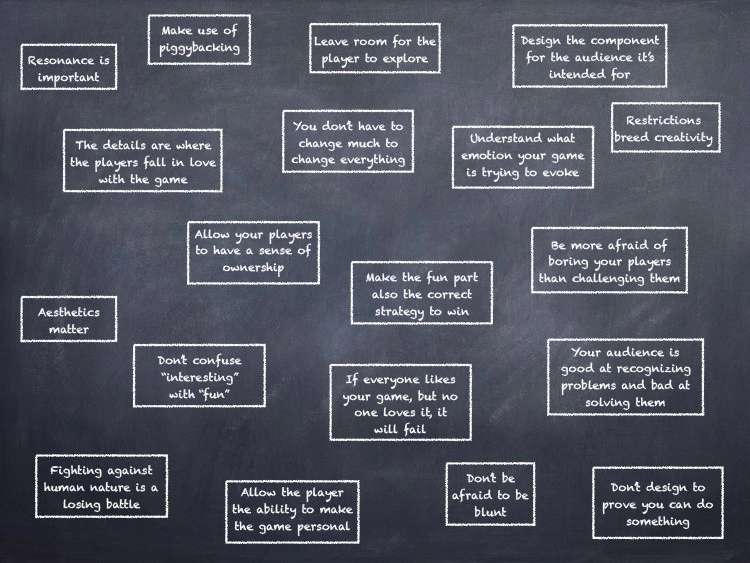 Make use of
piggybacking
Leave room for the
player to explore
Design the component
for the audience it's
intended for
Resonance is
important
Restrictions
breed creativity
The details are where
the players fall in love
with the game
You don't have to
change much to
change everything
Understand what
emotion your game
is trying to evoke
Allow your players
to have a sense of
ownership
Be more afraid of
boring your players
than challenging them
Make the fun part
also the correct
strategy to win
Aesthetics
matter
Don't confuse
"interesting"
with "fun"
Your audience is
good at recognizing
problems and bad at
solving them
If everyone likes
your game, but no
one loves it, it
will fail
Fighting against
human nature is a
losing battle
Allow the player
the ability to make
the game personal
Don't be
afraid to be
blunt
Don't design to
prove you can do
something